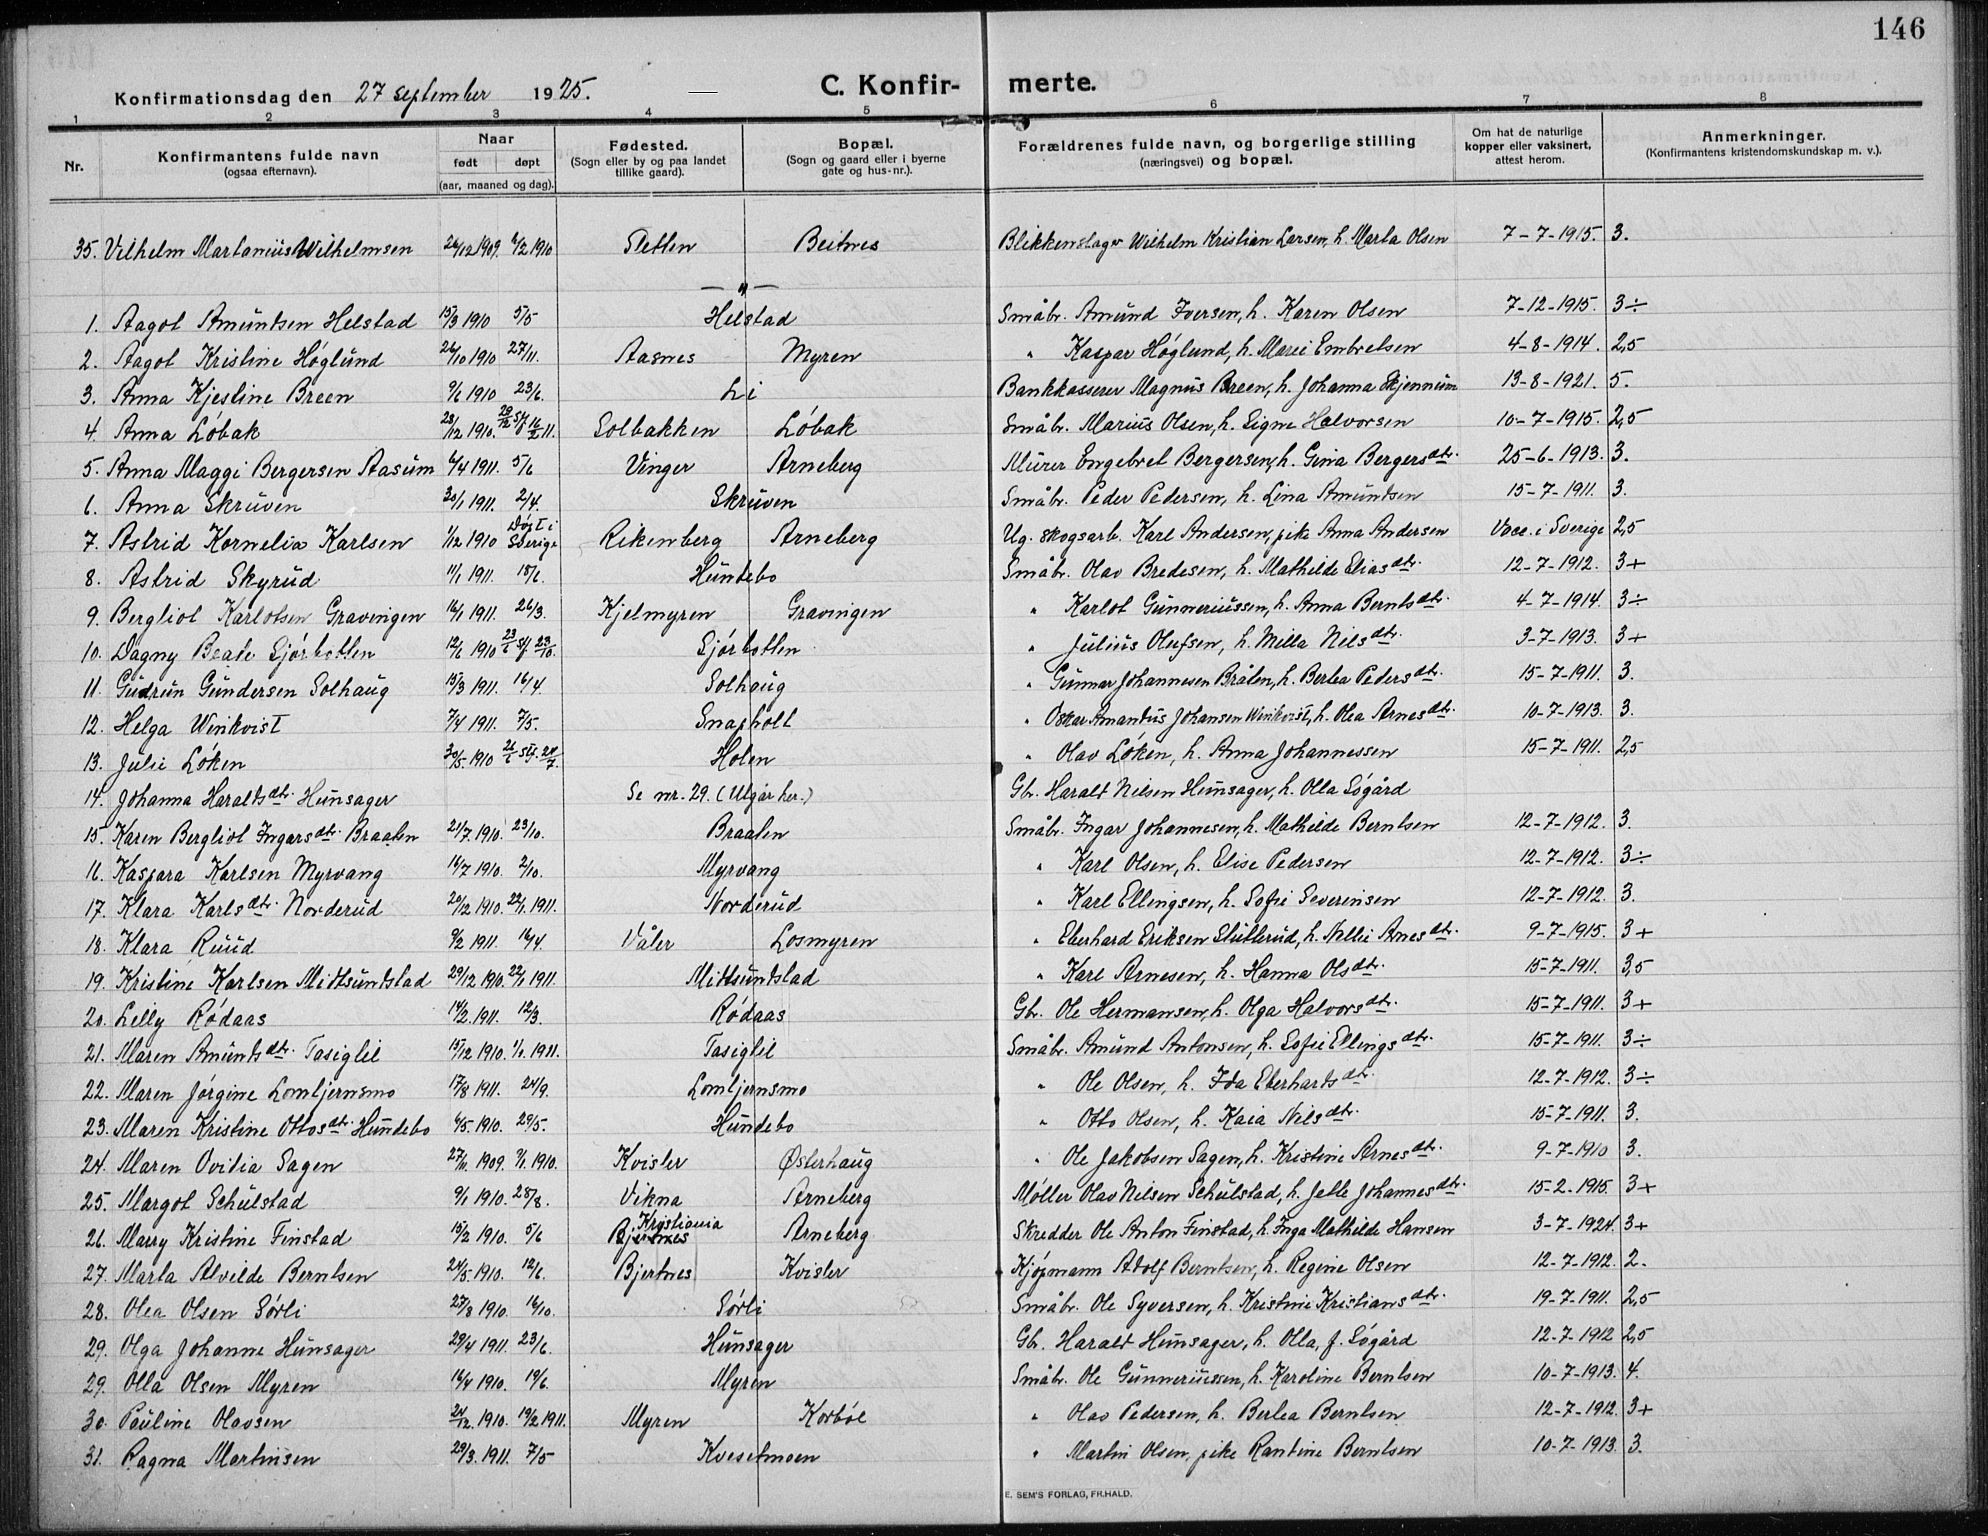 146
Konfirmationsdag den 27 september 1925.
C. Konfir- merte.
1 2 3 4 5 6 7 8
Nr. Konfirmantens fulde navn (ogsaa efternavn). Naar født døpt (aar, maaned og dag). Fødested. (Sogn eller by og paa landet tillike gaard). Bopæl. (Sogn og gaard eller i byerne gate og hus-nr.). Forældrenes fulde navn, og borgerlige stilling (næringsvei) og bopæl. Om hat de naturlige kopper eller vaksinert, attest herom. Anmerkninger. (Konfirmantens kristendomskundskap m. v.).
35. Vilhelm Martanius Wilhelmsen 26/12 1909. 6/2 1910 Sletten Beitnes Blikkenslager Wilhelm Kristian Larsen, h. Marta Olsen 7-7-1915. 3.
— " —
1. Aagot Amundsen Helstad 15/3 1910 5/5 Helstad Småbr. Amund Iversen, h. Karen Olsen 7-12-1915. 3÷
2. Aagot Kristine Høglund 26/10 1910 27/11. Aasnes Myren " Kaspar Høglund, h. Marei Embretsen 4-8-1914. 2,5
3. Anna Kjestine Breen 9/6 1910 23/6. Li Bankkasserer Magnus Breen, h. Johanna Skjennum 13-8-1921. 5.
4. Anna Løbak 28/12 1910. 29/12 Stf 16/2 11. Solbakken Løbak Småbr. Marius Olsen, h. Signe Halvorsen 10-7-1915. 2,5
5. Anna Maggi Bergersen Aasum 6/4 1911. 5/6 Vinger Arneberg Murer Engebret Bergersen, h. Gina Bergersdtr. 25-6-1913. 3.
6. Anna Skruven 30/1 1911. 2/4. Skruven Småbr. Peder Pedersen, h. Lina Amundsen 15-7-1911. 3.
7. Astrid Kornelia Karlsen 1/12 1910 Døpt i Sverige Rikenberg Arneberg Ug. skogsarb. Karl Andersen, pike Anna Andersen Vacc. i Sverige 2,5
8. Astrid Skyrud 11/1 1911. 18/6. Hundebo Småbr. Olav Bredesen, h. Mathilde Eliasdtr. 12-7-1912. 3+
9. Bergliot Karlotsen Gravingen 16/1 1911. 26/3. Kjelmyren Gravingen " Karlot Gunneriussen, h. Anna Berntsdtr. 4-7-1914. 3÷
10. Dagny Beate Sjørbotten 12/6 1910 23/6 Stf 23/10. Sjørbotten " Julius Olufsen, h. Milla Nilsdtr. 3-7-1913. 3+
11. Gudrun Gundersen Solhaug 15/3 1911. 16/4. Solhaug " Gunnar Johannesen Bråten, h. Berlea Pedersdtr. 15-7-1911. 3.
12. Helga Winkvist 7/4 1911. 7/5. Snapholt " Oskar Amandus Johansen Winkvist, h. Olea Arnesdtr. 10-7-1913. 3.
13. Julie Løken 30/5 1910 26/6 Stf. 24/7. Holen " Olav Løken, h. Anna Johannessen 15-7-1911. 2,5
14. Johanna Haraldsdtr. Hunsager Se nr. 29. (Utgår her.) Gbr. Harald Nilsen Hunsager, h. Olla Søgård
15. Karen Bergliot Ingarsdtr. Braaten 21/7. 1910. 23/10. Braaten Småbr. Ingar Johannesen, h. Mathilde Berntsen 12-7-1912. 3.
16. Kaspara Karlsen Myrvang 16/7 1910. 2/10. Myrvang " Karl Olsen, h. Elise Pedersen 12-7-1912. 3÷
17. Klara Karlsdtr. Norderud 20/12 1910. 22/1. 1911. Norderud " Karl Ellingsen, h. Sofie Severinsen 12-7-1912. 3.
18. Klara Ruud 9/2 1911. 16/4. Våler Losmyren " Eberhard Eriksen Slutterud, h. Nellie Arnesdtr. 9-7-1915. 3+
19. Kristine Karlsen Midtsundstad 29/12 1910. 22/1 1911. Midtsundstad " Karl Arnesen, h. Hanna Olsdtr. 15-7-1911. 3,5
20. Lilly Rødaas 14/2. 1911. 12/3. Rødaas Gbr. Ole Hermansen, h. Olga Halvorsdtr. 15-7-1911. 3+
21. Maren Amundsdtr. Tasiglil 15/12 1910. 1/1. 1911. Tasiglil Småbr. Amund Antonsen, h. Sofie Ellingsdtr. 15-7-1911. 3÷
22. Maren Jørgine Lomtjernsmo 17/8 1911. 24/9. Lomtjernsmo " Ole Olsen, h. Ida Eberhardsdtr. 12-7-1912. 3÷
23. Maren Kristine Ottosdtr. Hundebo 6/5. 1910. 29/5. Hundebo " Otto Olsen, h. Kaia Nilsdtr. 15-7-1911. 3.
24. Maren Ovidia Sagen 27/11. 1909. 9/1. 1910. Kvisler Østerhaug " Ole Jakobsen Sagen, h. Kristine Arnesdtr. 9-7-1910 3.
25. Margot Schulstad 9/1 1910. 28/8. Vikna Arneberg Møller Olav Nilsen Schulstad, h. Jelle Johannesdtr. 15-2-1915. 3+
26. Marry Kristine Finstad 15/2 1910. 5/6 Kristiania Bjertnes Arneberg Skredder Ole Anton Finstad, h. Inga Mathilde Hansen 3-7-1924. 3+
27. Marta Alvilde Berntsen 24/5 1910. 12/6. Bjertnes Kvisler Kjøpmann Adolf Berntsen, h. Regine Olsen 12-7-1912. 2.
28. Olea Olsen Sørli 27/8 1910. 16/10. Sørli Småbr. Ole Syversen, h. Kristine Kristiansdtr. 19-7-1911. 2,5
29. Olga Johanne Hunsager 29/4 1911. 23/6. Hunsager Gbr. Harald Hunsager, h. Olla, f. Søgård 12-7-1912 2,5
29. Olla Olsen Myren 16/4 1910. 19/6. Myren Småbr. Ole Gunneriussen, h. Karoline Berntsen 10-7-1913. 4.
30. Pauline Olavsen 24/12. 1910. 19/2 1911. Myren Korbøl " Olav Pedersen, h. Berlea Berntsen 12-7-1912. 3+
31. Ragna Martinsen 29/3. 1911. 7/5 Kvesetmoen " Martin Olsen, pike Rantine Berntsen 10-7-1913. 3.
E. SEM'S FORLAG, FR.HALD.